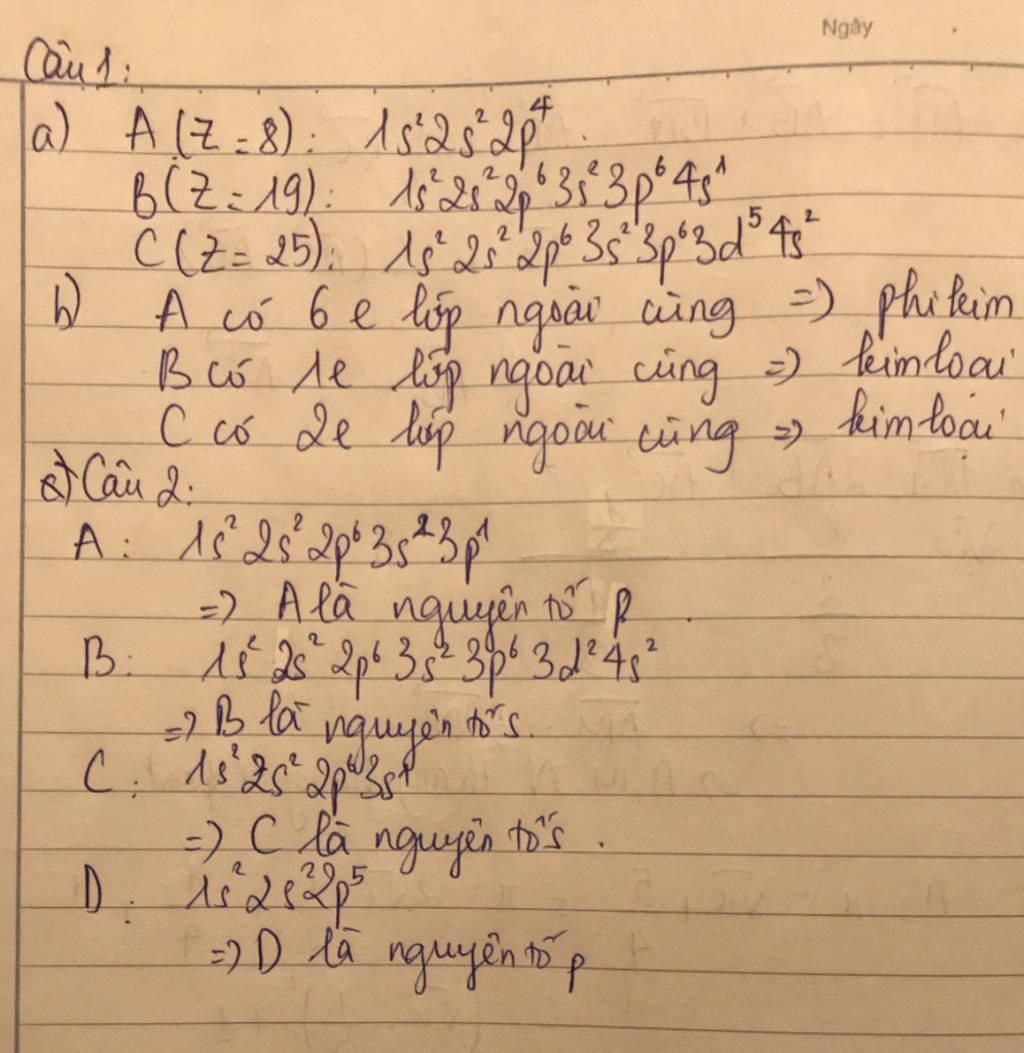 Ngày
Câu 1:
a) A (Z = 8): 1s²2s²2p⁴.
B (Z = 19): 1s²2s²2p⁶3s²3p⁶4s¹
C (Z = 25): 1s²2s²2p⁶3s²3p⁶3d⁵4s²
b) A có 6e lớp ngoài cùng => phi kim
B có 1e lớp ngoài cùng => kim loại
C có 2e lớp ngoài cùng => kim loại
Câu 2:
A: 1s²2s²2p⁶3s²3p¹
=> A là nguyên tố p.
B: 1s²2s²2p⁶3s²3p⁶3d²4s²
=> B là nguyên tố s.
C: 1s²2s²2p⁶3s¹
=> C là nguyên tố s.
D: 1s²2s²2p⁵
=> D là nguyên tố p